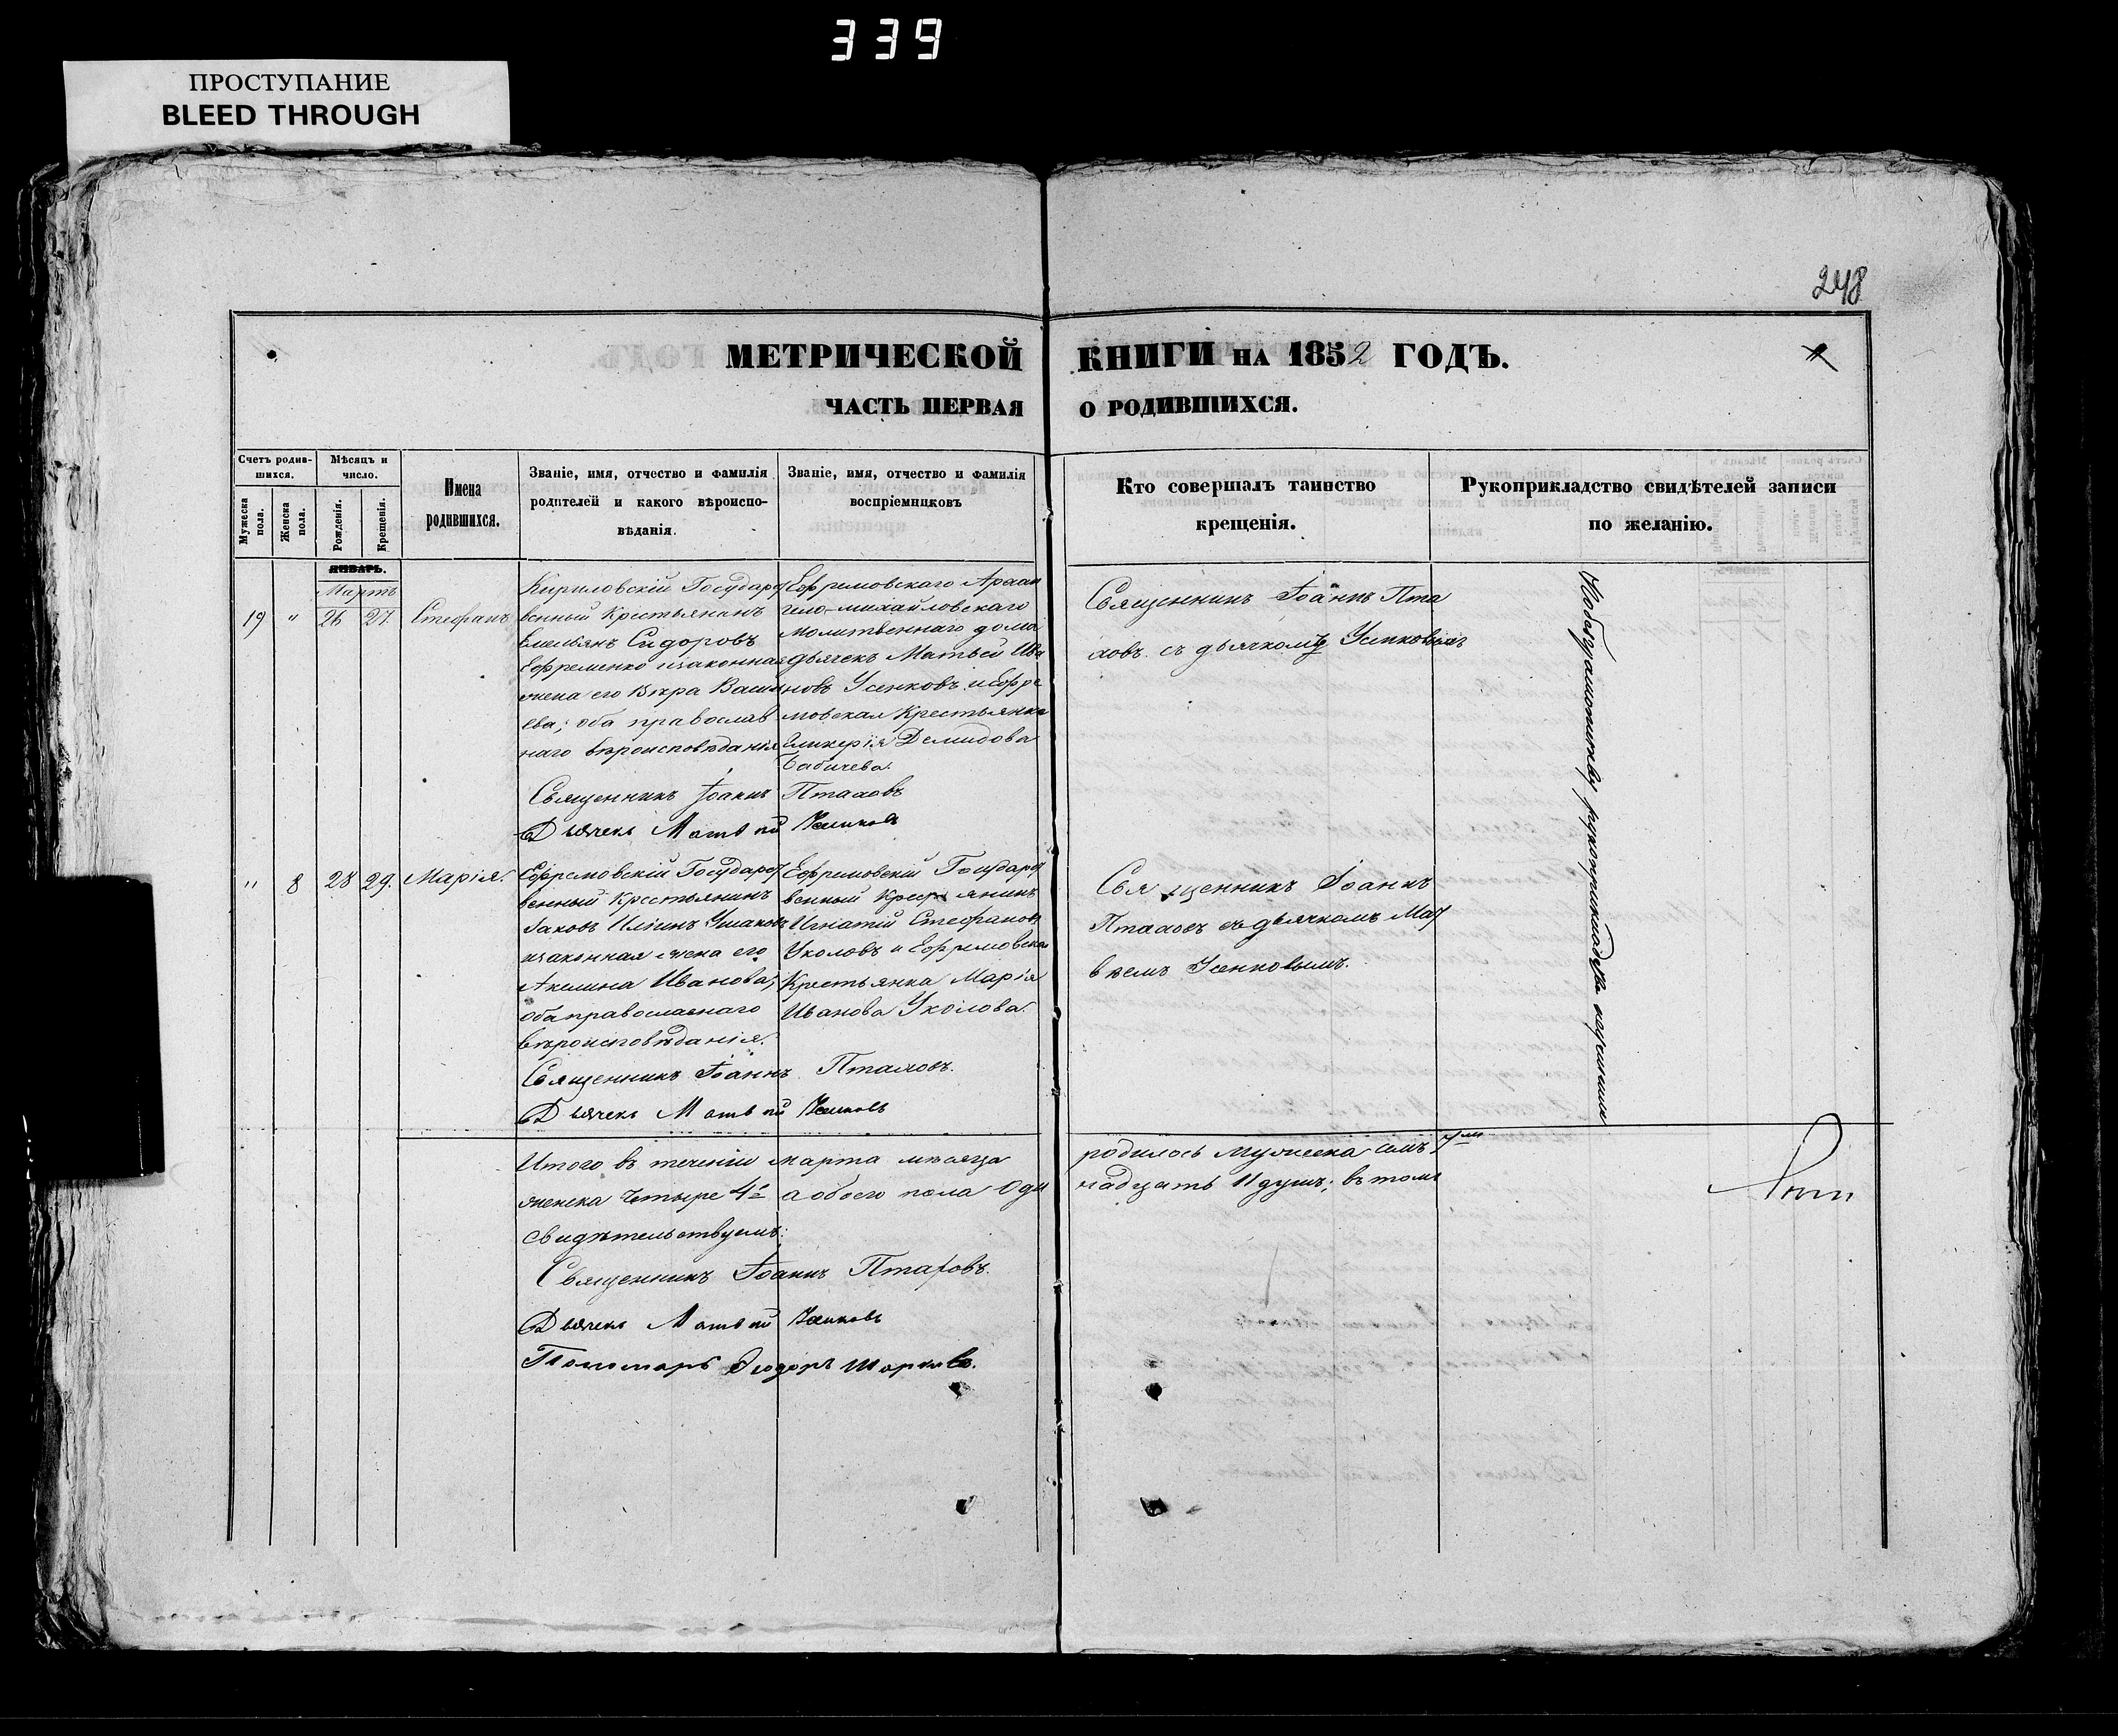 339
ПРОСТУПАНИЕ
BLEED THROUGH
248
МЕТРИЧЕСКОЙ КНИГИ НА 1852 ГОДЪ.
ЧАСТЬ ПЕРВАЯ О РОДИВШИХСЯ.
Счетъ родив-
шихся.
Мужеска пола.
Женска пола.
Мѣсяцъ и
число.
Рожденія.
Крещенія.
Имена
родившихся.
Званіе, имя, отчество и фамилія
родителей и какого вѣроиспо-
вѣданія.
Званіе, имя, отчество и фамилія
воспріемниковъ
Кто совершалъ таинство
крещенія.
Рукоприкладство свидѣтелей записи
по желанію.
ЯНВАРЬ.
Мартъ
19 " 26 27. Стефанъ
Кириловскій Государст
венный Крестьянинъ
Емельянъ Сидоровъ
Ефременко изаконная
жена его Вѣра Васил
ева; оба православ
наго вѣроисповѣданія
Ефремовскаго Архан
гело-михайловскаго
молитвеннаго дома
дьячекъ Матвей Ива
новъ Усенковъ и Ефре
мовская Крестьянка
Гликерія Демидова
Бабичева.
Священникъ Іоаннъ Птаховъ
Дьячекъ Матвей Усенковъ
Священникъ Іоаннъ Пта
ховъ съ дьячкомъ Усенковымъ
" 8 28 29. Марія.
Ефремовскій Государст
венный Крестьянинъ
Іаковъ Илiинъ Ушаковъ
изаконная жена его
Акелина Иванова;
оба православнаго
вѣроисповѣданія.
Ефремовскій Государст
венный Крестьянинъ
Игнатій Стефановъ
Уколовъ и Ефремовская
Крестьянка Марія
Иванова Уколова.
Священникъ Іоаннъ Птаховъ.
Дьячекъ Матвей Усенковъ
Священникъ Іоаннъ
Птаховъ съ дьячкомъ Мат
вѣемъ Усенковымъ.
рукоприкладства
Итого въ теченіи марта мѣсяца родилось мужеска семь 7мь
женска четыре 4е а обоего пола оди надцать 11 душъ; въ томъ
свидѣтельствуемъ:
Священникъ Іоаннъ Птаховъ.
Дьячекъ Матвей Усенковъ
Пономарь Ѳеодоръ